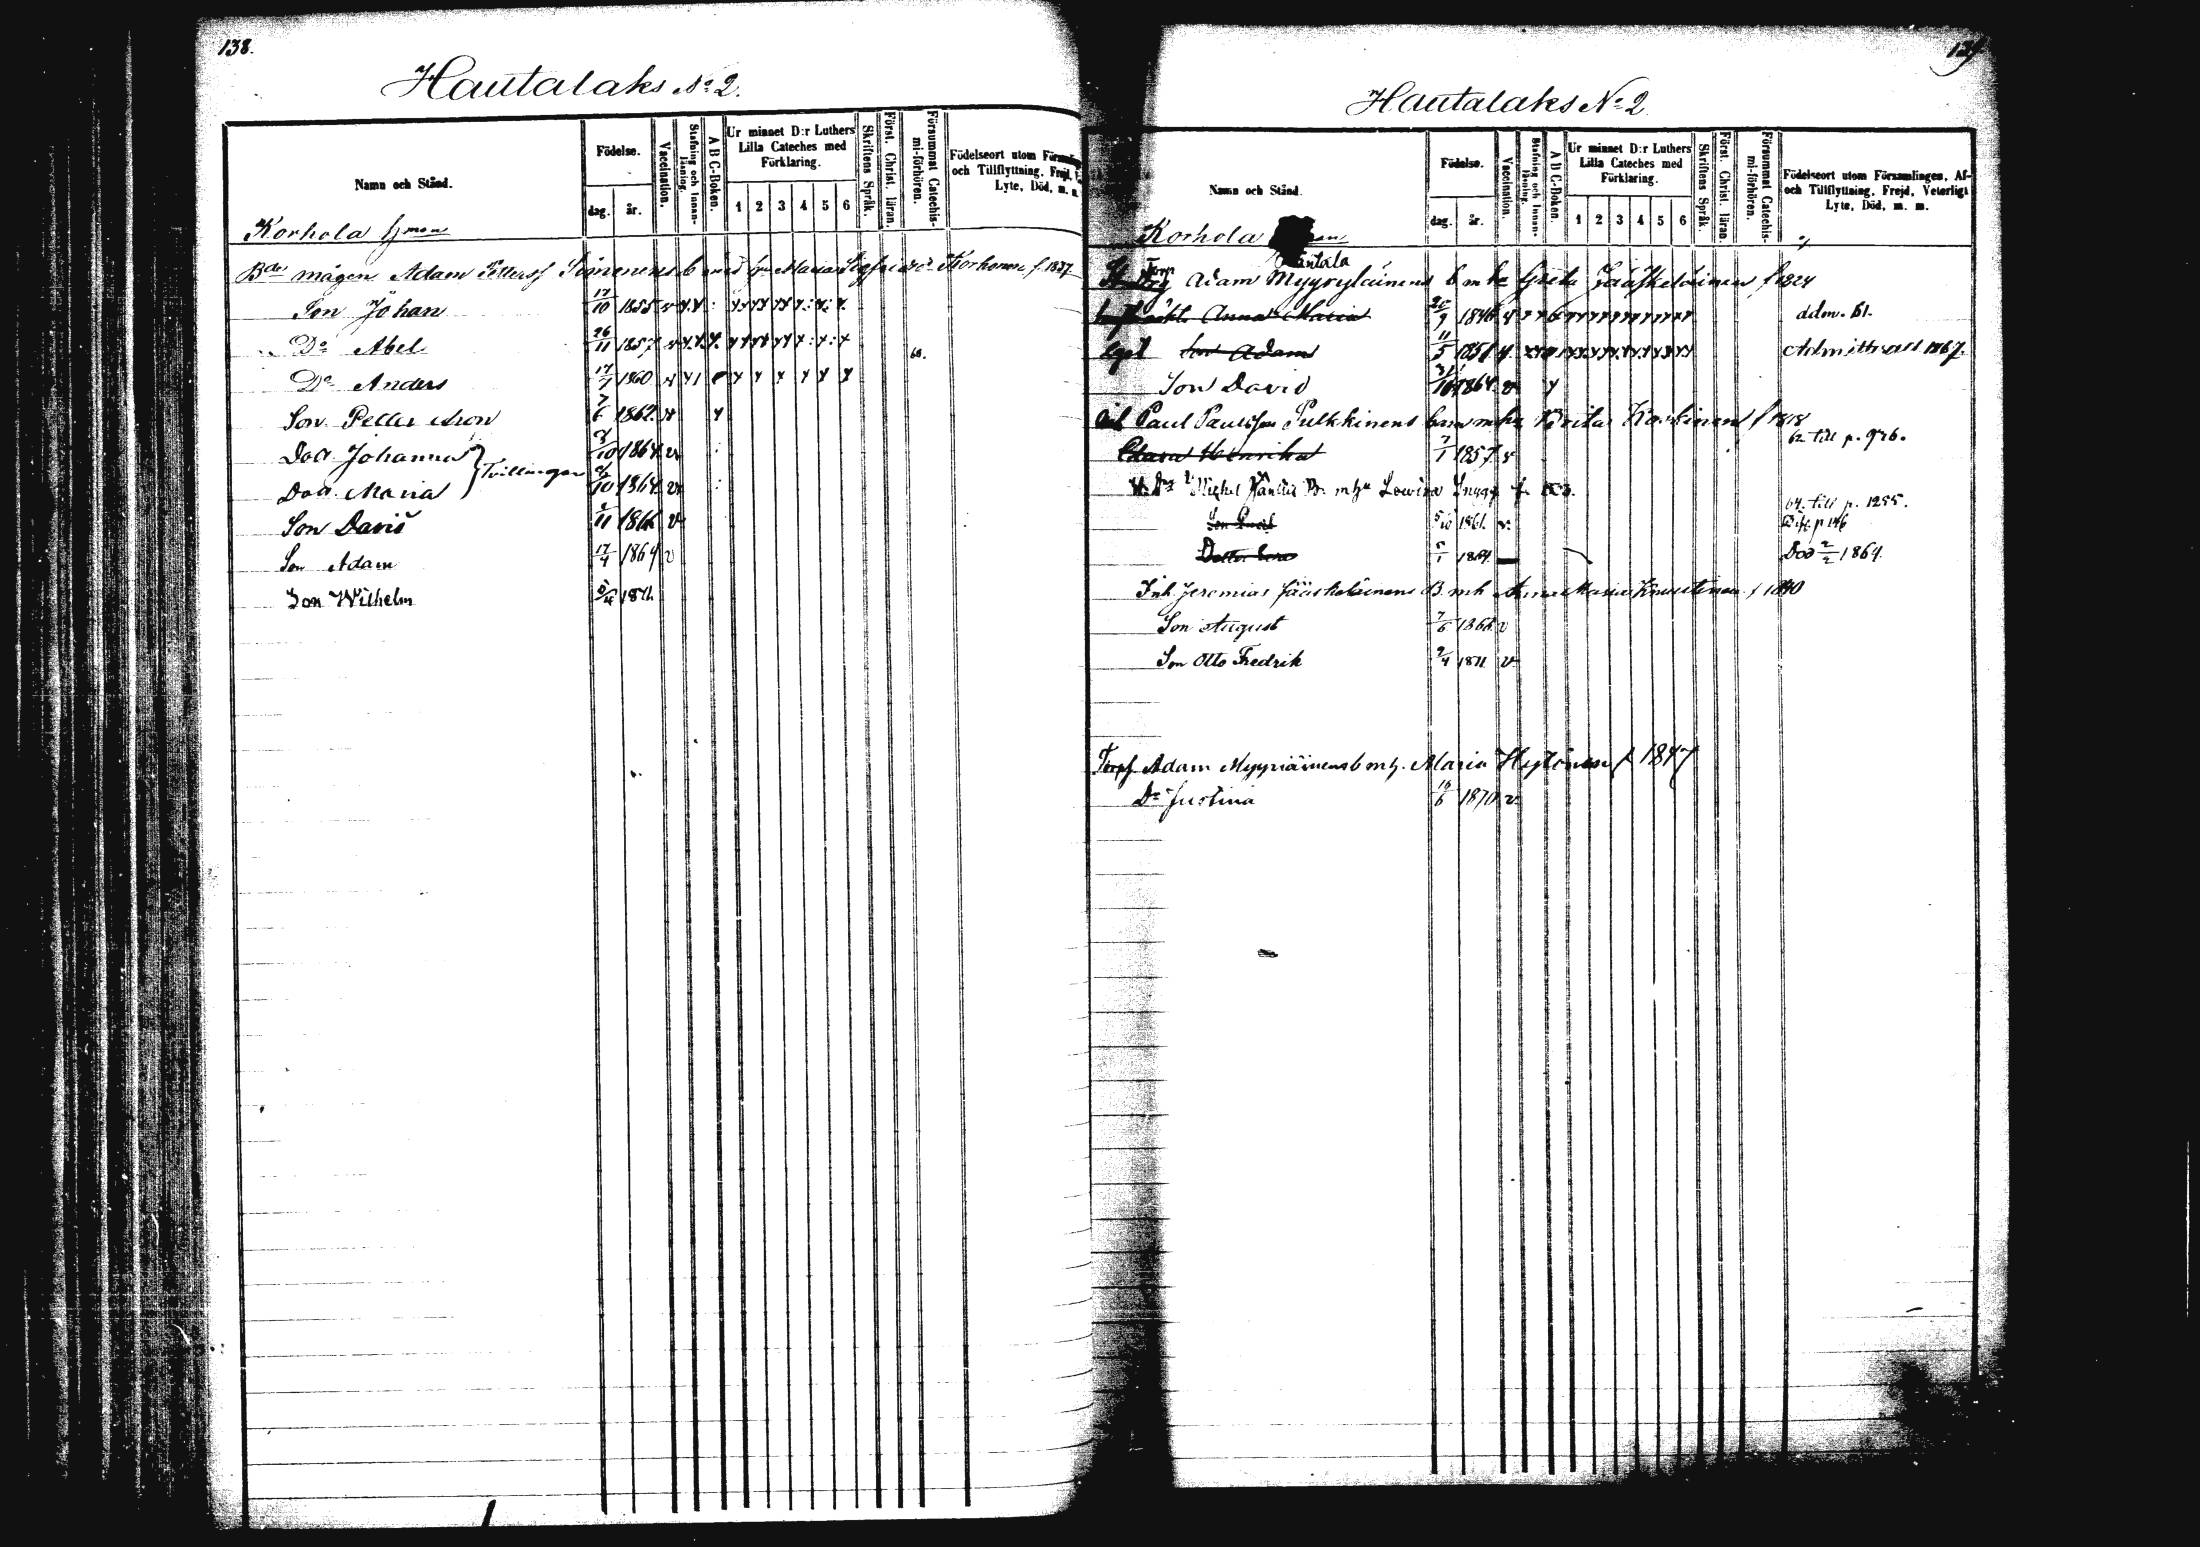 138.
Hautalaks No 2.
Namn och Stånd.
Födelse.
dag.
år.
Vaccination.
Stafning och Innanläsning.
A B C-Boken.
Ur minnet D:r Luthers Lilla Cateches med Förklaring.
1 2 3 4 5 6
Skriftens Språk.
Först. Christ. läran.
Försummat Catechismi-förhören.
Födelseort utom
och Tillflyttning, Frejd,
Lyte, Död, m. m.
Korhola Hman
Bde mågen Adam Petterss Simonens b med hu Maria Sigfrieds d. Korhonen f. 1837
Son Johan 17/10 1855
Do Abel 26/11 1857 60.
Do Anders 17/7 1860
Son Petter Aron 7/6 1862
Dotr Johanna 9/10 1864 v
Tvillingar
Dotr Maria 9/10 1864 v
Son David /11 1866 v
Son Adam 17/4 1869 v
Son Wilhelm 5/4 1872
139
Hautalaks No 2
Namn och Stånd.
Födelse.
dag.
år.
Vaccination.
Stafning och Innanläsning.
A B C-Boken.
Ur minnet D:r Luthers Lilla Cateches med Förklaring.
1 2 3 4 5 6
Skriftens Språk.
Först. Christ. läran.
Försummat Catechismi-förhören.
Födelseort utom Församlingen, Af-
och Tillflyttning, Frejd, Veterligt
Lyte, Död, m. m.
Korhola
Adam Myyryläinens b m hu Greta Jääskeläinen f 1824
Anna Maria 9 1846 adm. 61.
Son Adam 11/5 1851 Admitterad 1867.
Son David 31/10 1864 v
Paul Paulsson Pulkkinens b m hu Brita Korkinen f 1818
Clara Henrika 7/1 1857 62 till p. 976.
Michel B. m hu Lowisa Snygg f.
Son 5/10 1861 v. 64. till p. 1255.
p 146
Dotter 5/1 1864 Död 2/2 1864.
Inh. Jeremias Jääskeläinens B. m h Anna Maria Knuutinen f 1840
Son August 7/6 1868 v
Son Otto Fredrik 9/4 1871 v
Torpf Adam Myyriäinens b m h. Maria Hytönen f 1847
Dr Justina 16/6 1870 v